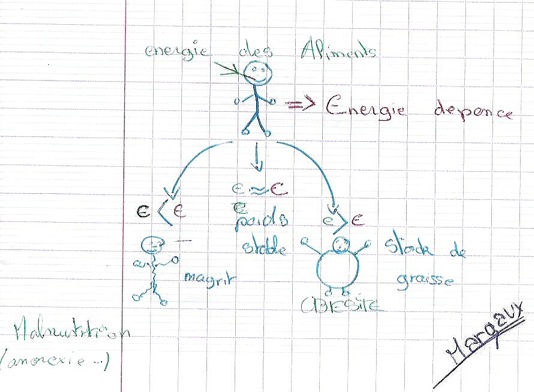 energie des Aliments
=> Energie depence
€ < €
€ ≈ €
€
poids
stable
€ > €
magrit
stock de
graisse
OBESITE
Malnutrition
(anorexie...)
Margaux